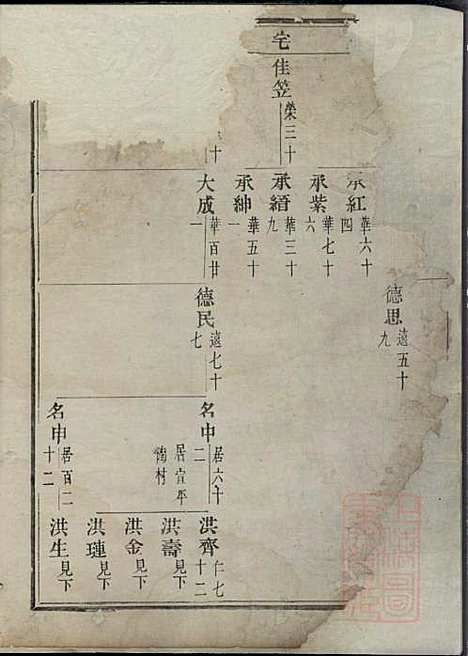 宅
佳笠 榮三十
承紅 華六十四
承紫 華七十六
承縉 華三十九
承紳 華五十一
大成 華百廿一
十
德思 遠五十九
德民 遠七十七
名中 居六十二
居宣平
名申 居百二十二
洪齊 仁七十二
洪壽 見下
洪金 見下
洪璉 見下
洪生 見下